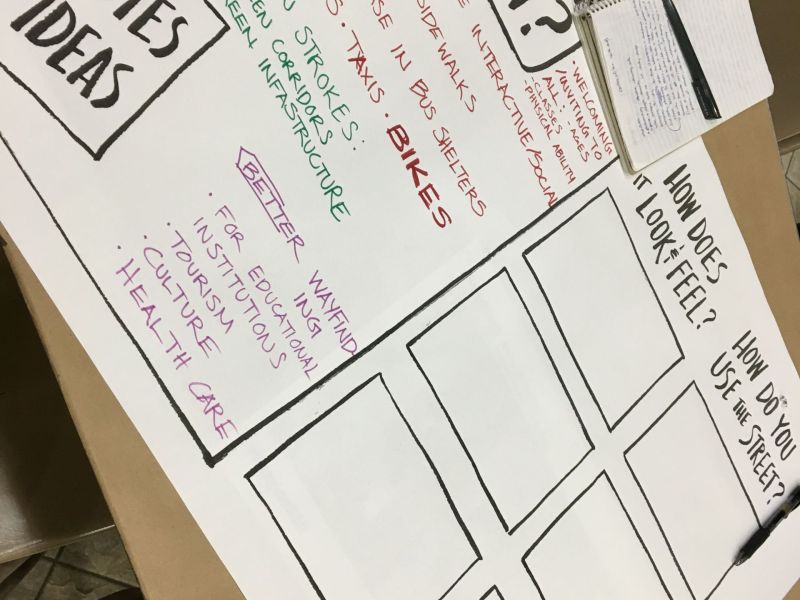 IES
IDEAS
N?
STROKES:
EN CORRIDORS
EEN INFASTRUCTURE
S. TAXIS. BIKES
SE IN BUS SHELTERS
SIDEWALKS
E INTERACTIVE/SOCIAL
• WELCOMING
/INVITING TO
ALL: • AGES
- CLASSES
- PHYSICAL ABILITY
BETTER WAYFIND
ING
• FOR EDUCATIONAL
INSTITUTIONS
• TOURISM
• CULTURE
• HEALTH CARE
HOW DOES
IT LOOK & FEEL?
HOW DO YOU
USE THE STREET?